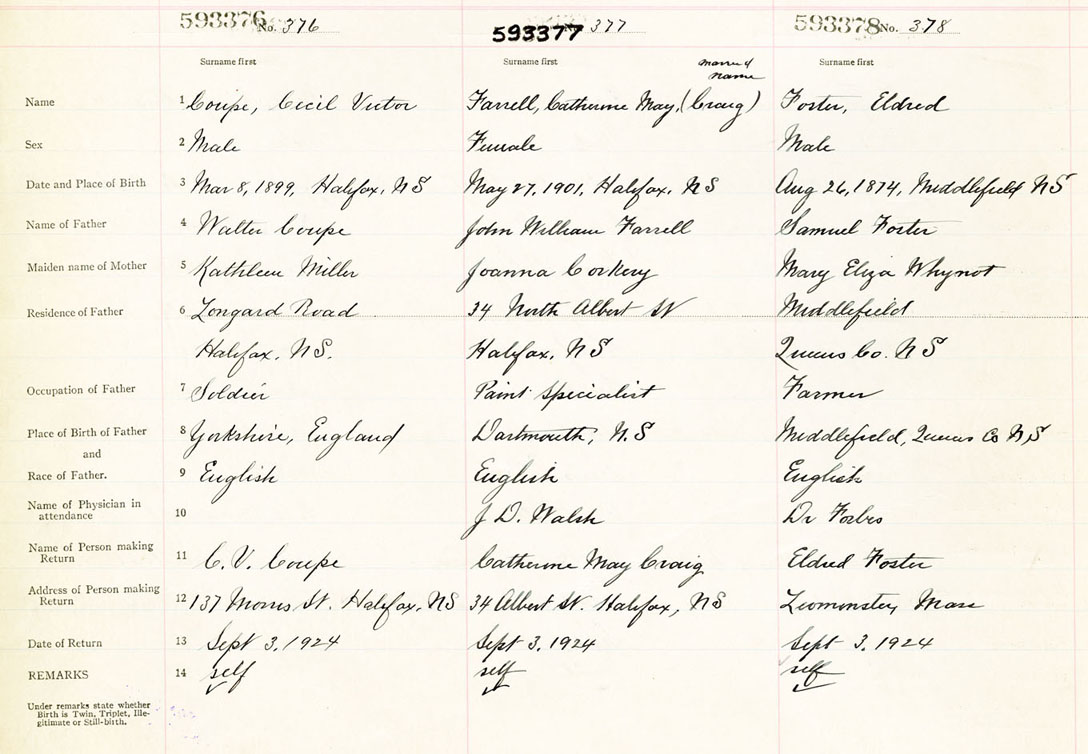 593376 No. 376 593377 377 593378 No. 378
Surname first Surname first married name Surname first
Name 1 Coupe, Cecil Victor Farrell, Catherine May, (Craig) Foster, Eldred
Sex 2 Male Female Male
Date and Place of Birth 3 Mar 8, 1899, Halifax, NS May 27, 1901, Halifax, NS Aug 26, 1874, Middlefield NS
Name of Father 4 Walter Coupe John William Farrell Samuel Foster
Maiden name of Mother 5 Kathleen Miller Joanna Corkery Mary Eliza Whynot
Residence of Father 6 Longard Road 34 North Albert St Middlefield
Halifax, NS. Halifax, NS Queens Co. NS
Occupation of Father 7 Soldier Paint specialist Farmer
Place of Birth of Father 8 Yorkshire, England Dartmouth, N.S Middlefield, Queens Co NS
and
Race of Father. 9 English English English
Name of Physician in attendance 10 J D. Walsh Dr Forbes
Name of Person making Return 11 C. V. Coupe Catherine May Craig Eldred Foster
Address of Person making Return 12 137 Morris St. Halifax, NS 34 Albert St. Halifax, NS Leominster, Mass
Date of Return 13 Sept 3, 1924 Sept 3, 1924 Sept 3, 1924
REMARKS 14 self self self
Under remarks state whether
Birth is Twin, Triplet, Ille-
gitimate or Still-birth.